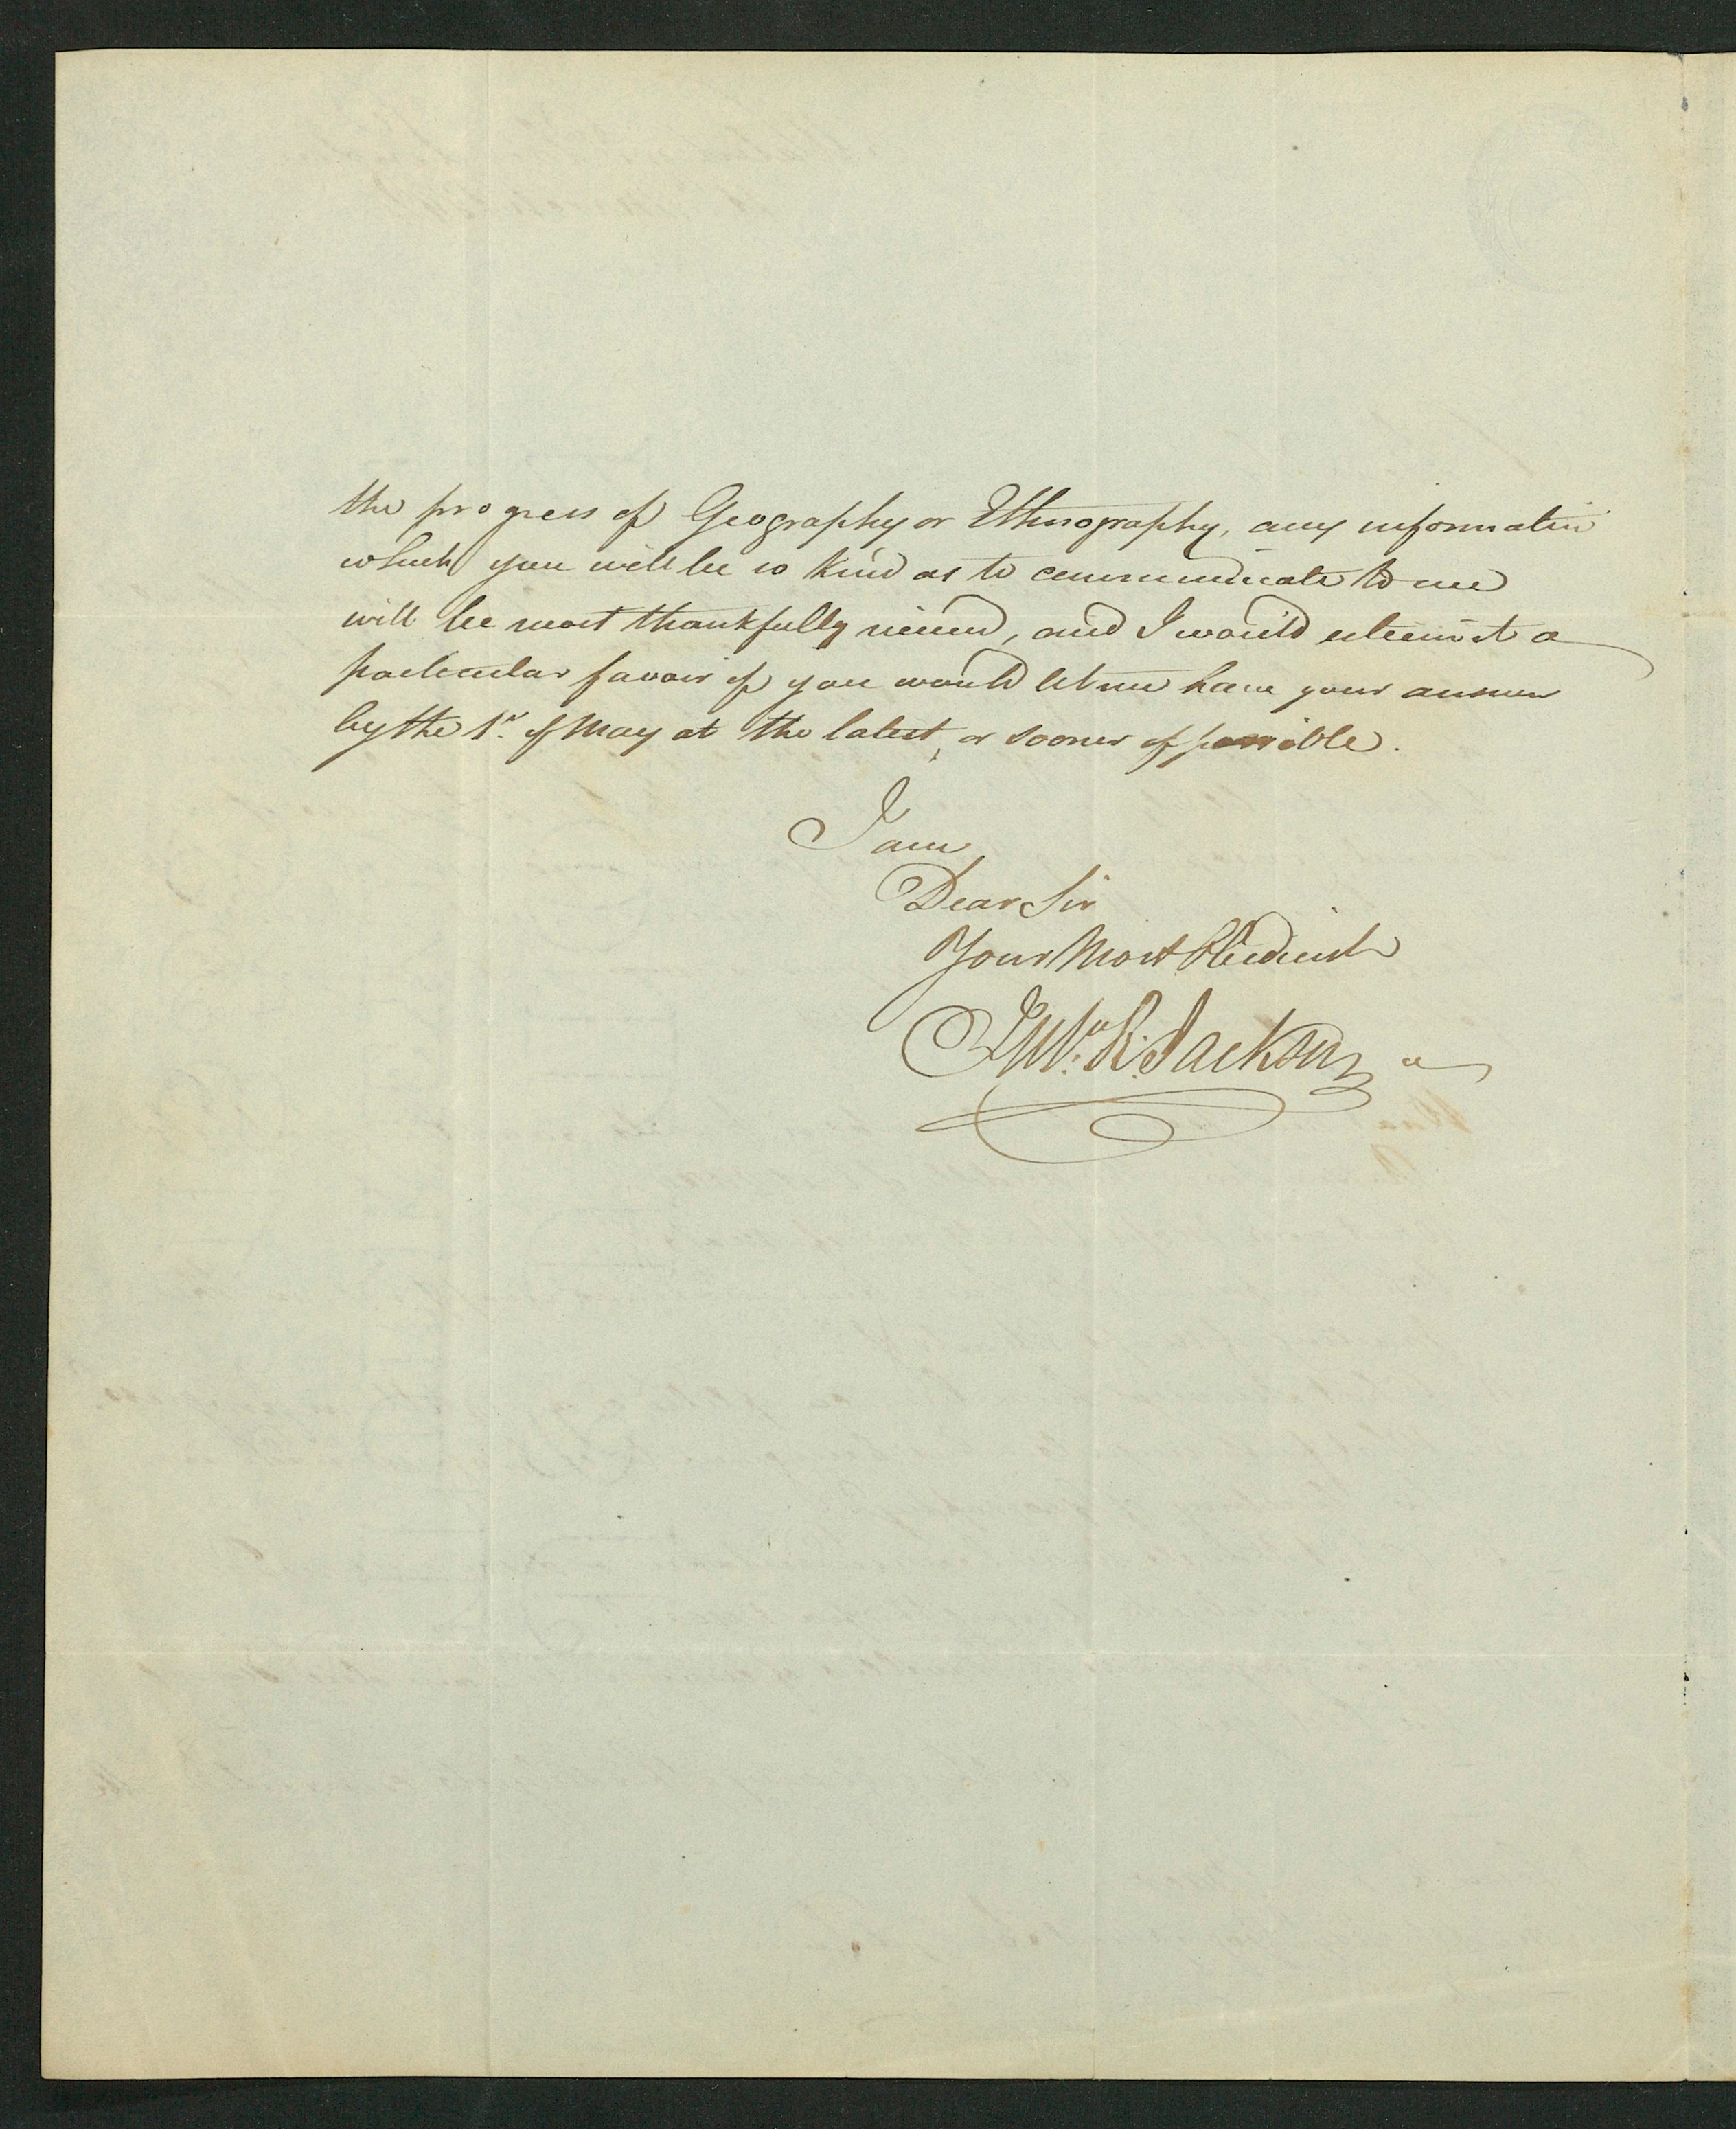 the progress of Geography or Ethnography, any information
which you will be so kind as to communicate to me
will be most thankfully received, and I would esteem it a
particular favour if you would let me have your answer
by the 1st. of May at the latest, or sooner if possible.
I am
Dear Sir
Your Most Obedient
R. Jackson